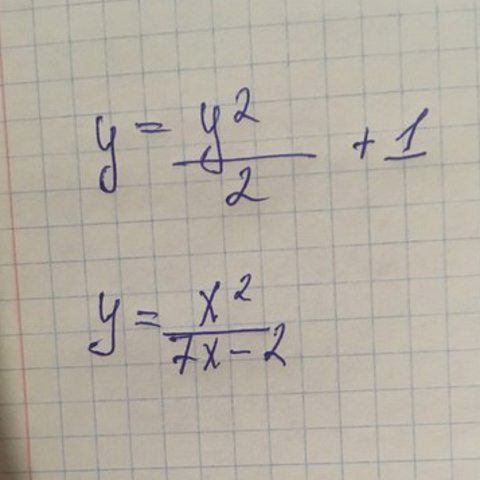 y = y²/2 + 1
y = x²/(7x - 2)